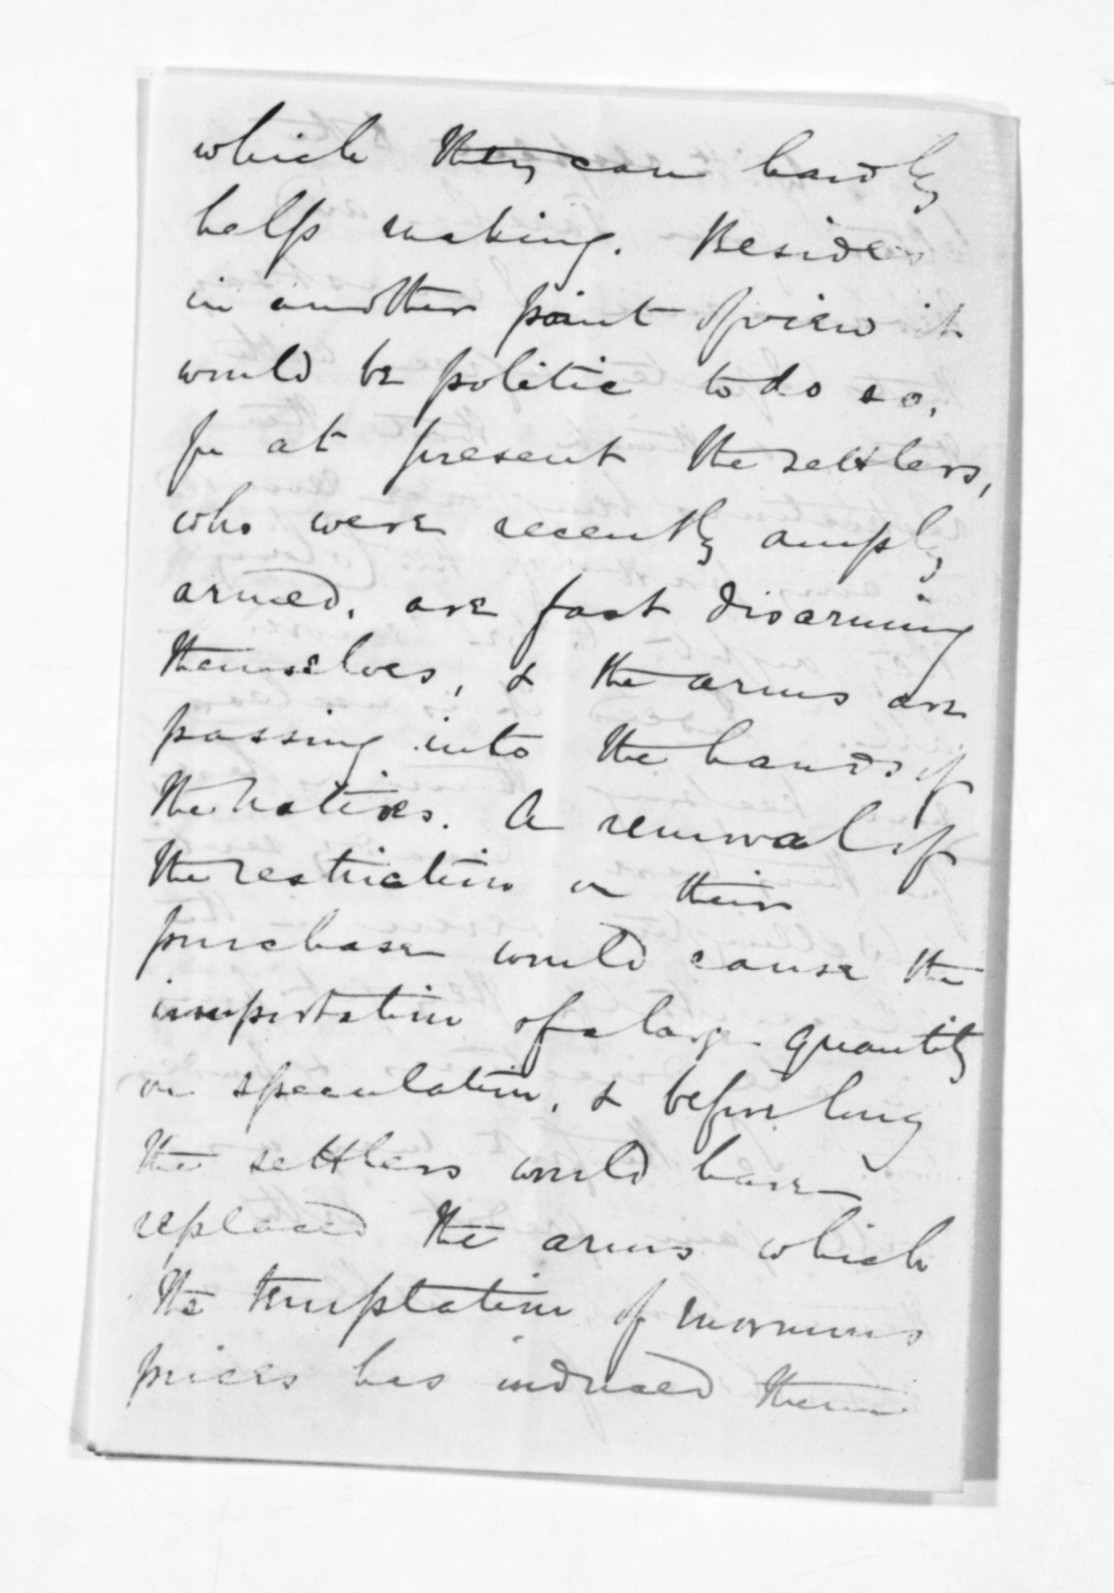 which they can hardly
help making. Besides
in another point of view it
would be politic to do so,
for at present the settlers,
who were recently amply
armed, are fast disarming
themselves, & the arms are
passing into the hands of
the natives. A renewal of
the restriction on their
purchase would cause the
importation of a large quantity
on speculation, & before long
the settlers would have
replaced the arms which
the temptation of enormous
prices has induced them